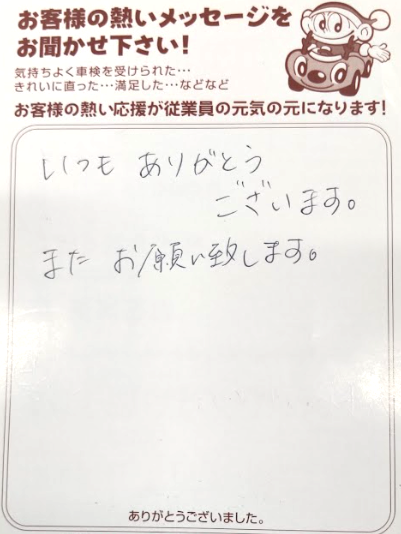 お客様の熱いメッセージを
お聞かせ下さい!
気持ちよく車検を受けられた…
きれいに直った…満足した…などなど
お客様の熱い応援が従業員の元気の元になります!
いつも ありがとう
ございます。
また お願い致します。
ありがとうございました。